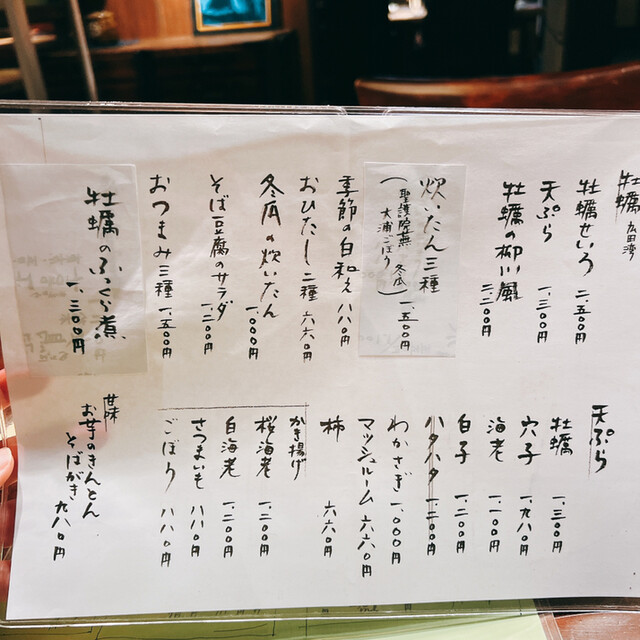 牡蠣 広田湾
牡蠣せいろ 二、五〇〇円
天ぷら 一、三〇〇円
牡蠣の柳川風 二、二〇〇円
炊いたん三種 一、五〇〇円
(聖護院蕪 冬瓜
大浦ごぼう)
季節の白和え 八八〇円
おひたし二種 六六〇円
冬瓜の炊いたん 一、〇〇〇円
そば豆腐のサラダ 一、二〇〇円
おつまみ三種 一、五〇〇円
牡蠣のふっくら煮 一、三〇〇円
天ぷら
牡蠣 一、三〇〇円
穴子 一、九八〇円
海老 一、一〇〇円
白子 一、二〇〇円
ハタハタ 一、二〇〇円
わかさぎ 一、〇〇〇円
マッシュルーム 六六〇円
柿 六六〇円
かき揚げ
桜海老 一、二〇〇円
白海老 一、二〇〇円
さつまいも 八八〇円
ごぼう 八八〇円
甘味
お芋のきんとん
そばがき 九八〇円